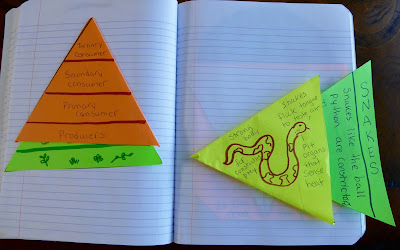 Tertiary
Consumer
Secondary
Consumer
Primary
Consumer
Producers
Strong
body
for
constricting
prey
Snakes
flick tongue
to
Pit
organs
that
sense
heat
SNAKES
Snakes like the ball
Python are constrictors